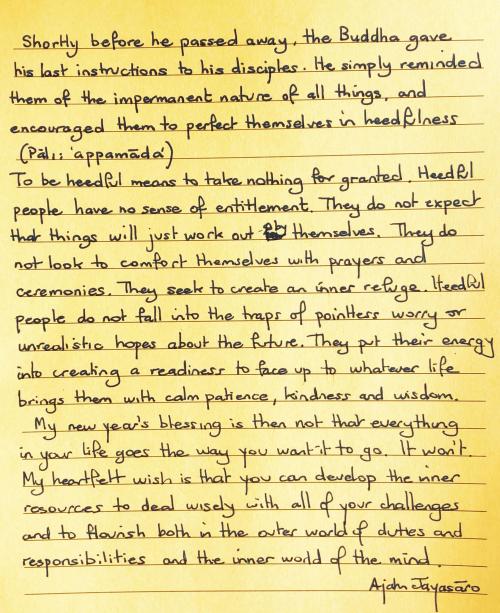 Shortly before he passed away, the Buddha gave
his last instructions to his disciples. He simply reminded
them of the impermanent nature of all things, and
encouraged them to perfect themselves in heedfulness
(Pāli: 'appamāda')
To be heedful means to take nothing for granted. Heedful
people have no sense of entitlement. They do not expect
that things will just work out themselves. They do
not look to comfort themselves with prayers and
ceremonies. They seek to create an inner refuge. Heedful
people do not fall into the traps of pointless worry or
unrealistic hopes about the future. They put their energy
into creating a readiness to face up to whatever life
brings them with calm patience, kindness and wisdom.
My new year's blessing is then not that everything
in your life goes the way you want it to go. It won't.
My heartfelt wish is that you can develop the inner
resources to deal wisely with all of your challenges
and to flourish both in the outer world of duties and
responsibilities and the inner world of the mind.
Ajahn Jayasāro